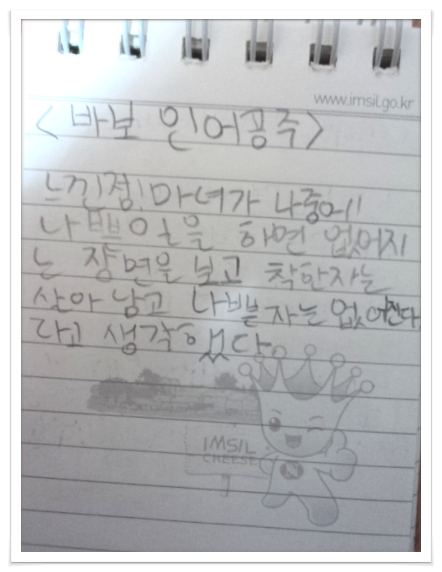 www.imsil.go.kr
<바보 인어공주>
느낀점! 마녀가 나중에
나쁜일을 하면 없어지
는 장면을 보고 착한자는
살아남고 나쁜자는 없어진다
라고 생각했다.
IMSIL
CHEESE
N